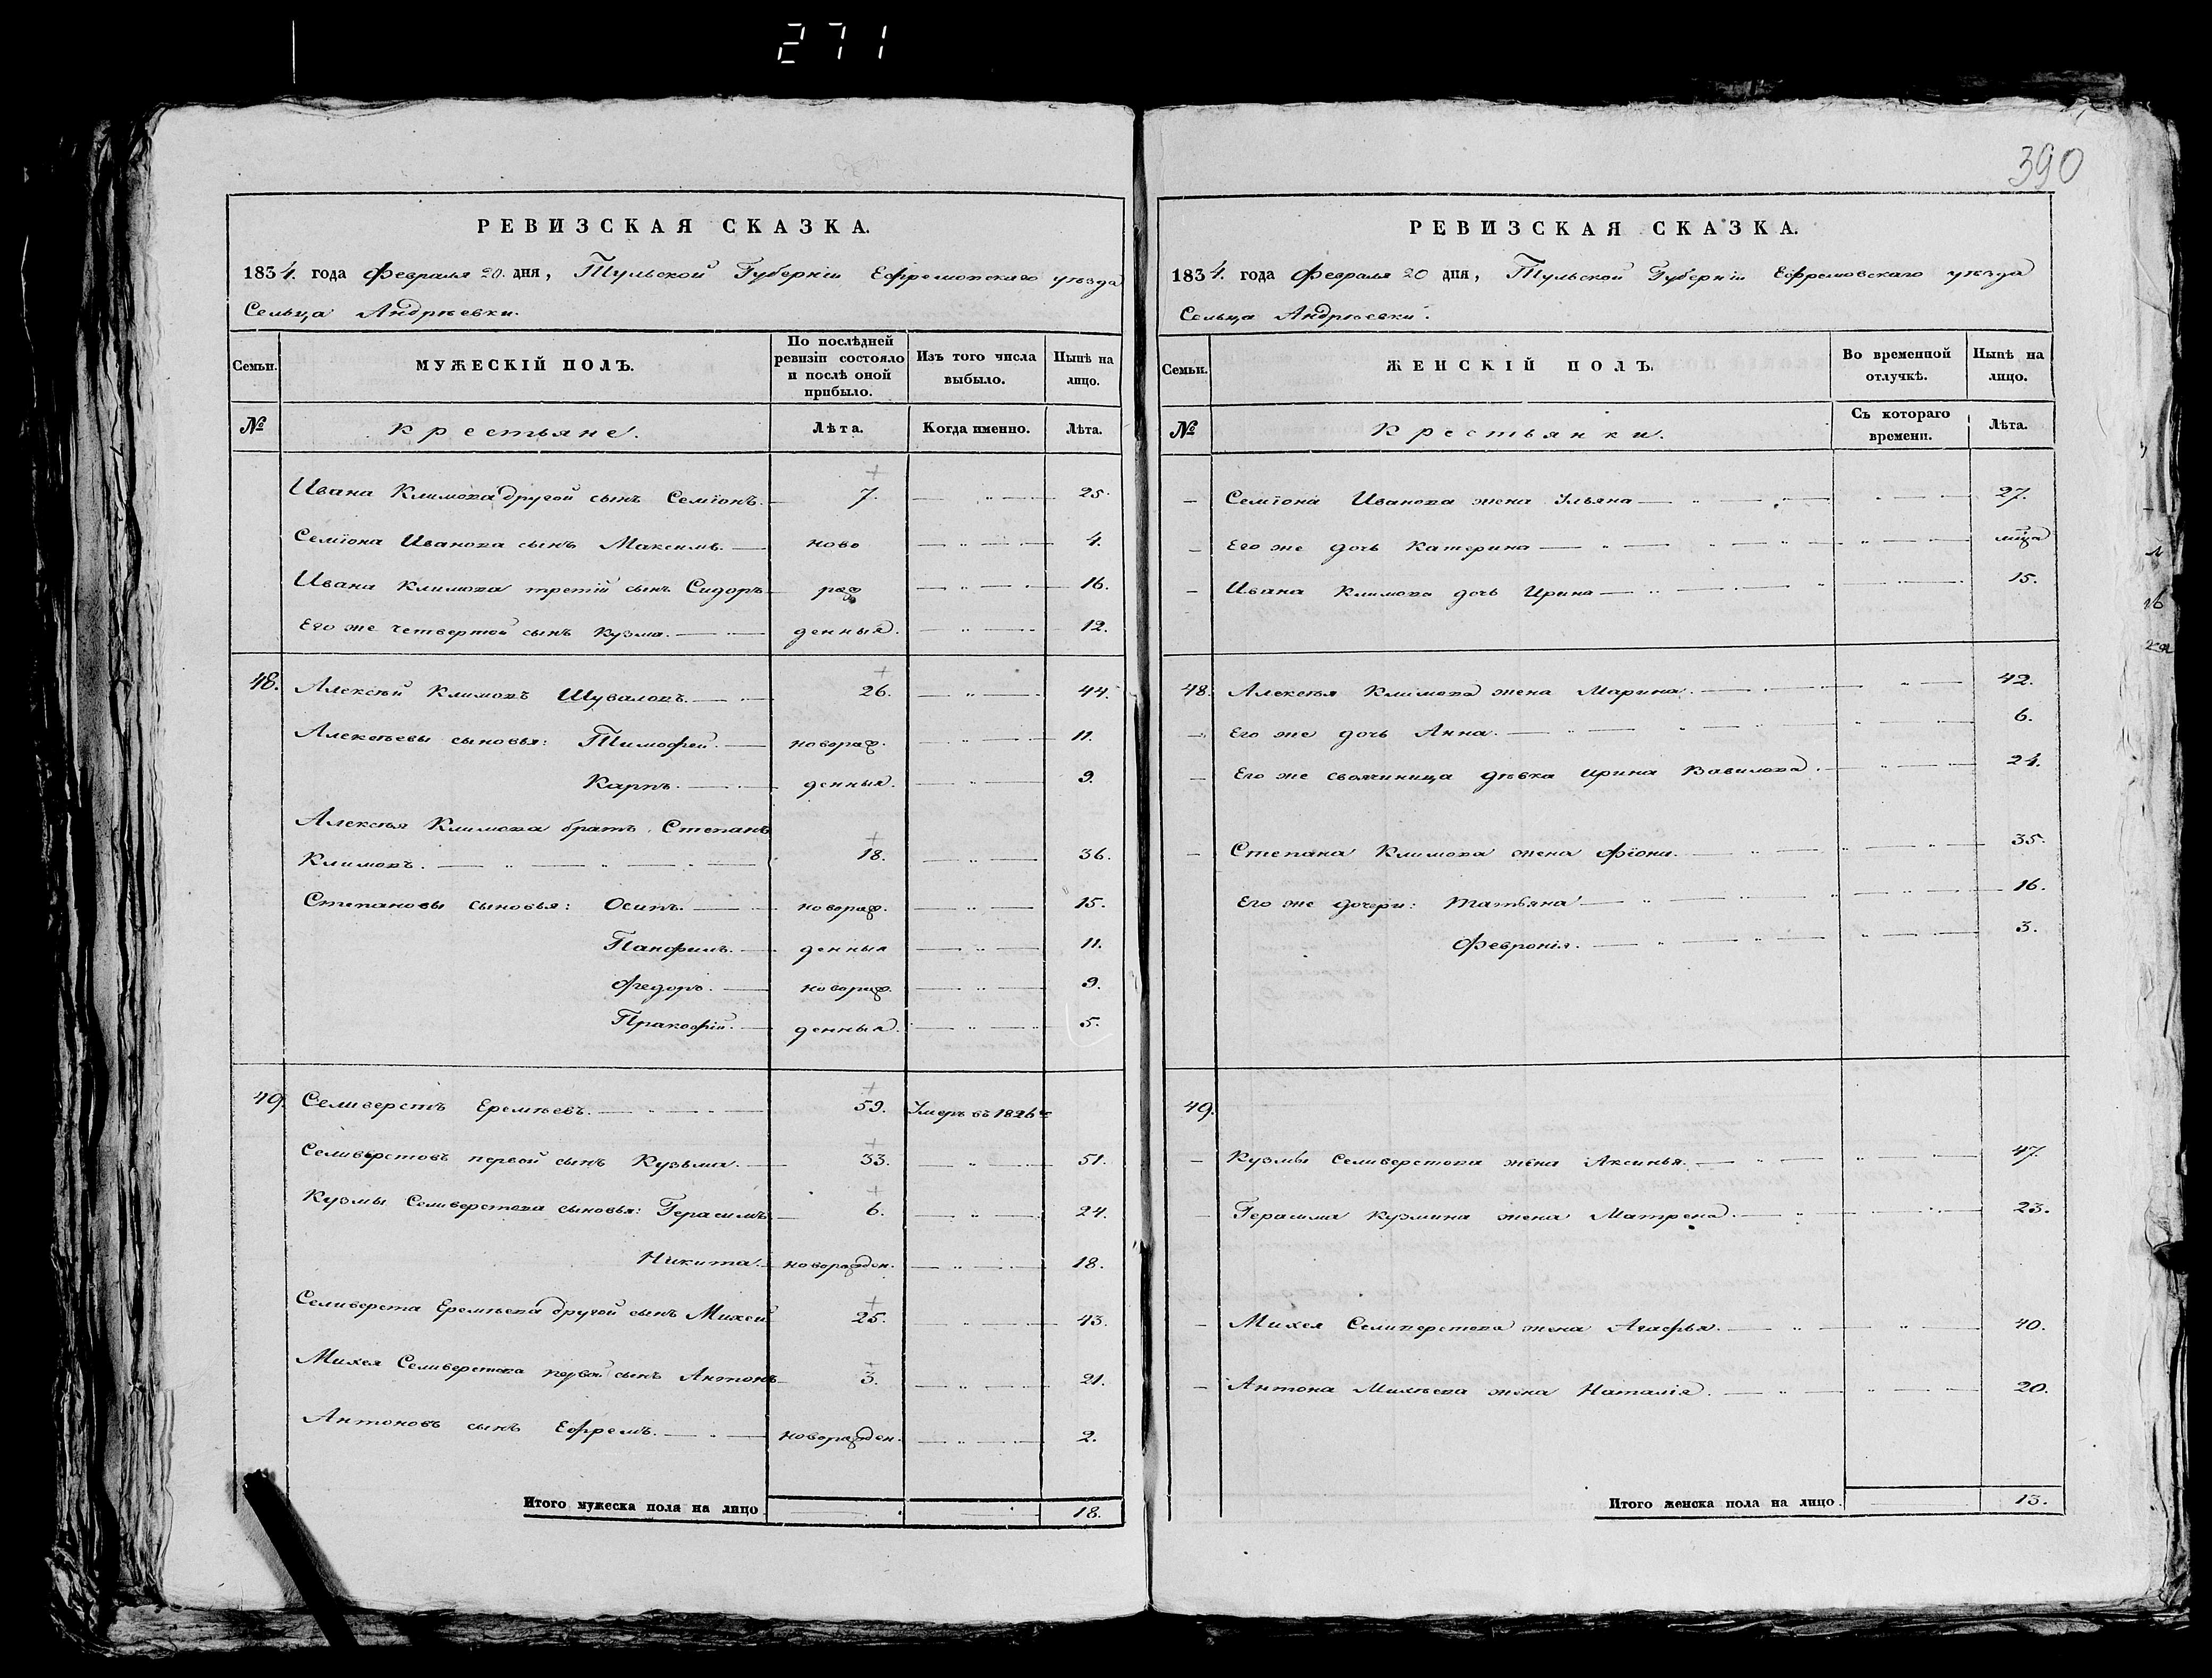 271
390
РЕВИЗСКАЯ СКАЗКА.
1834. года Февраля 20. дня, Тульской Губерніи Ефремовскаго уѣзда
Сельца Андрѣевки.
Семьи.
МУЖЕСКІЙ ПОЛЪ.
По послѣдней ревизіи состояло и послѣ оной прибыло.
Изъ того числа выбыло.
Нынѣ на лицо.
№
Крестьяне.
Лѣта.
Когда именно.
Лѣта.
Ивана Климова другой сынъ Семіонъ. 7. 25.
Семіона Иванова сынъ Максимъ. ново 4.
Ивана Климова третій сынъ Сидоръ рож 16.
Его же четвертой сынъ Кузма. денныя. 12.
48. Алексѣй Климовъ Шуваловъ. 26. 44.
Алексѣевы сыновья: Тимофей.новорож. 11.
Карпъ. денныя. 9.
Алексѣя Климова братъ Степанъ
Климовъ. 18. 36.
Степановы сыновья: Осипъ.новорож. 15.
Панфилъ. денныя 11.
Федоръ. новорож. 9.
Пракофій. денныя. 5.
49. Селиверстъ Еремѣевъ. 59. Умеръ въ 1826 м
Селиверстовъ первой сынъ Кузьма. 33. 51.
Кузмы Селиверстова сыновья: Герасимъ 6. 24.
Никита. новорожден. 18.
Селиверста Еремѣева другой сынъ Михей 25. 43.
Михея Селиверстова первой сынъ Антонъ 3. 21.
Антоновъ сынъ Ефремъ. новорожден. 2.
Итого мужеска пола на лицо 18.
РЕВИЗСКАЯ СКАЗКА.
1834. года Февраля 20 дня, Тульской Губерніи Ефремовскаго уѣзда
Сельца Андрѣевки.
Семьи.
ЖЕНСКІЙ ПОЛЪ.
Во временной отлучкѣ.
Нынѣ на лицо.
№
Крестьянки.
Съ котораго времени.
Лѣта.
Семіона Иванова жена Ульяна 27.
Его же дочь Катерина
Ивана Климова дочь Ирина 15.
48. Алексѣя Климова жена Марина. 42.
Его же дочь Анна. 6.
Его же своячиница дѣвка Ирина Вавилова. 24.
Степана Климова жена Фіона. 35.
Его же дочери: Татьяна 16.
Февронія. 3.
49.
Кузмы Селиверстова жена Аксинья. 47.
Герасима Кузмина жена Матрена. 23.
Михея Селиверстова жена Агафья. 40.
Антона Михѣева жена Наталія. 20.
Итого женска пола на лицо. 13.